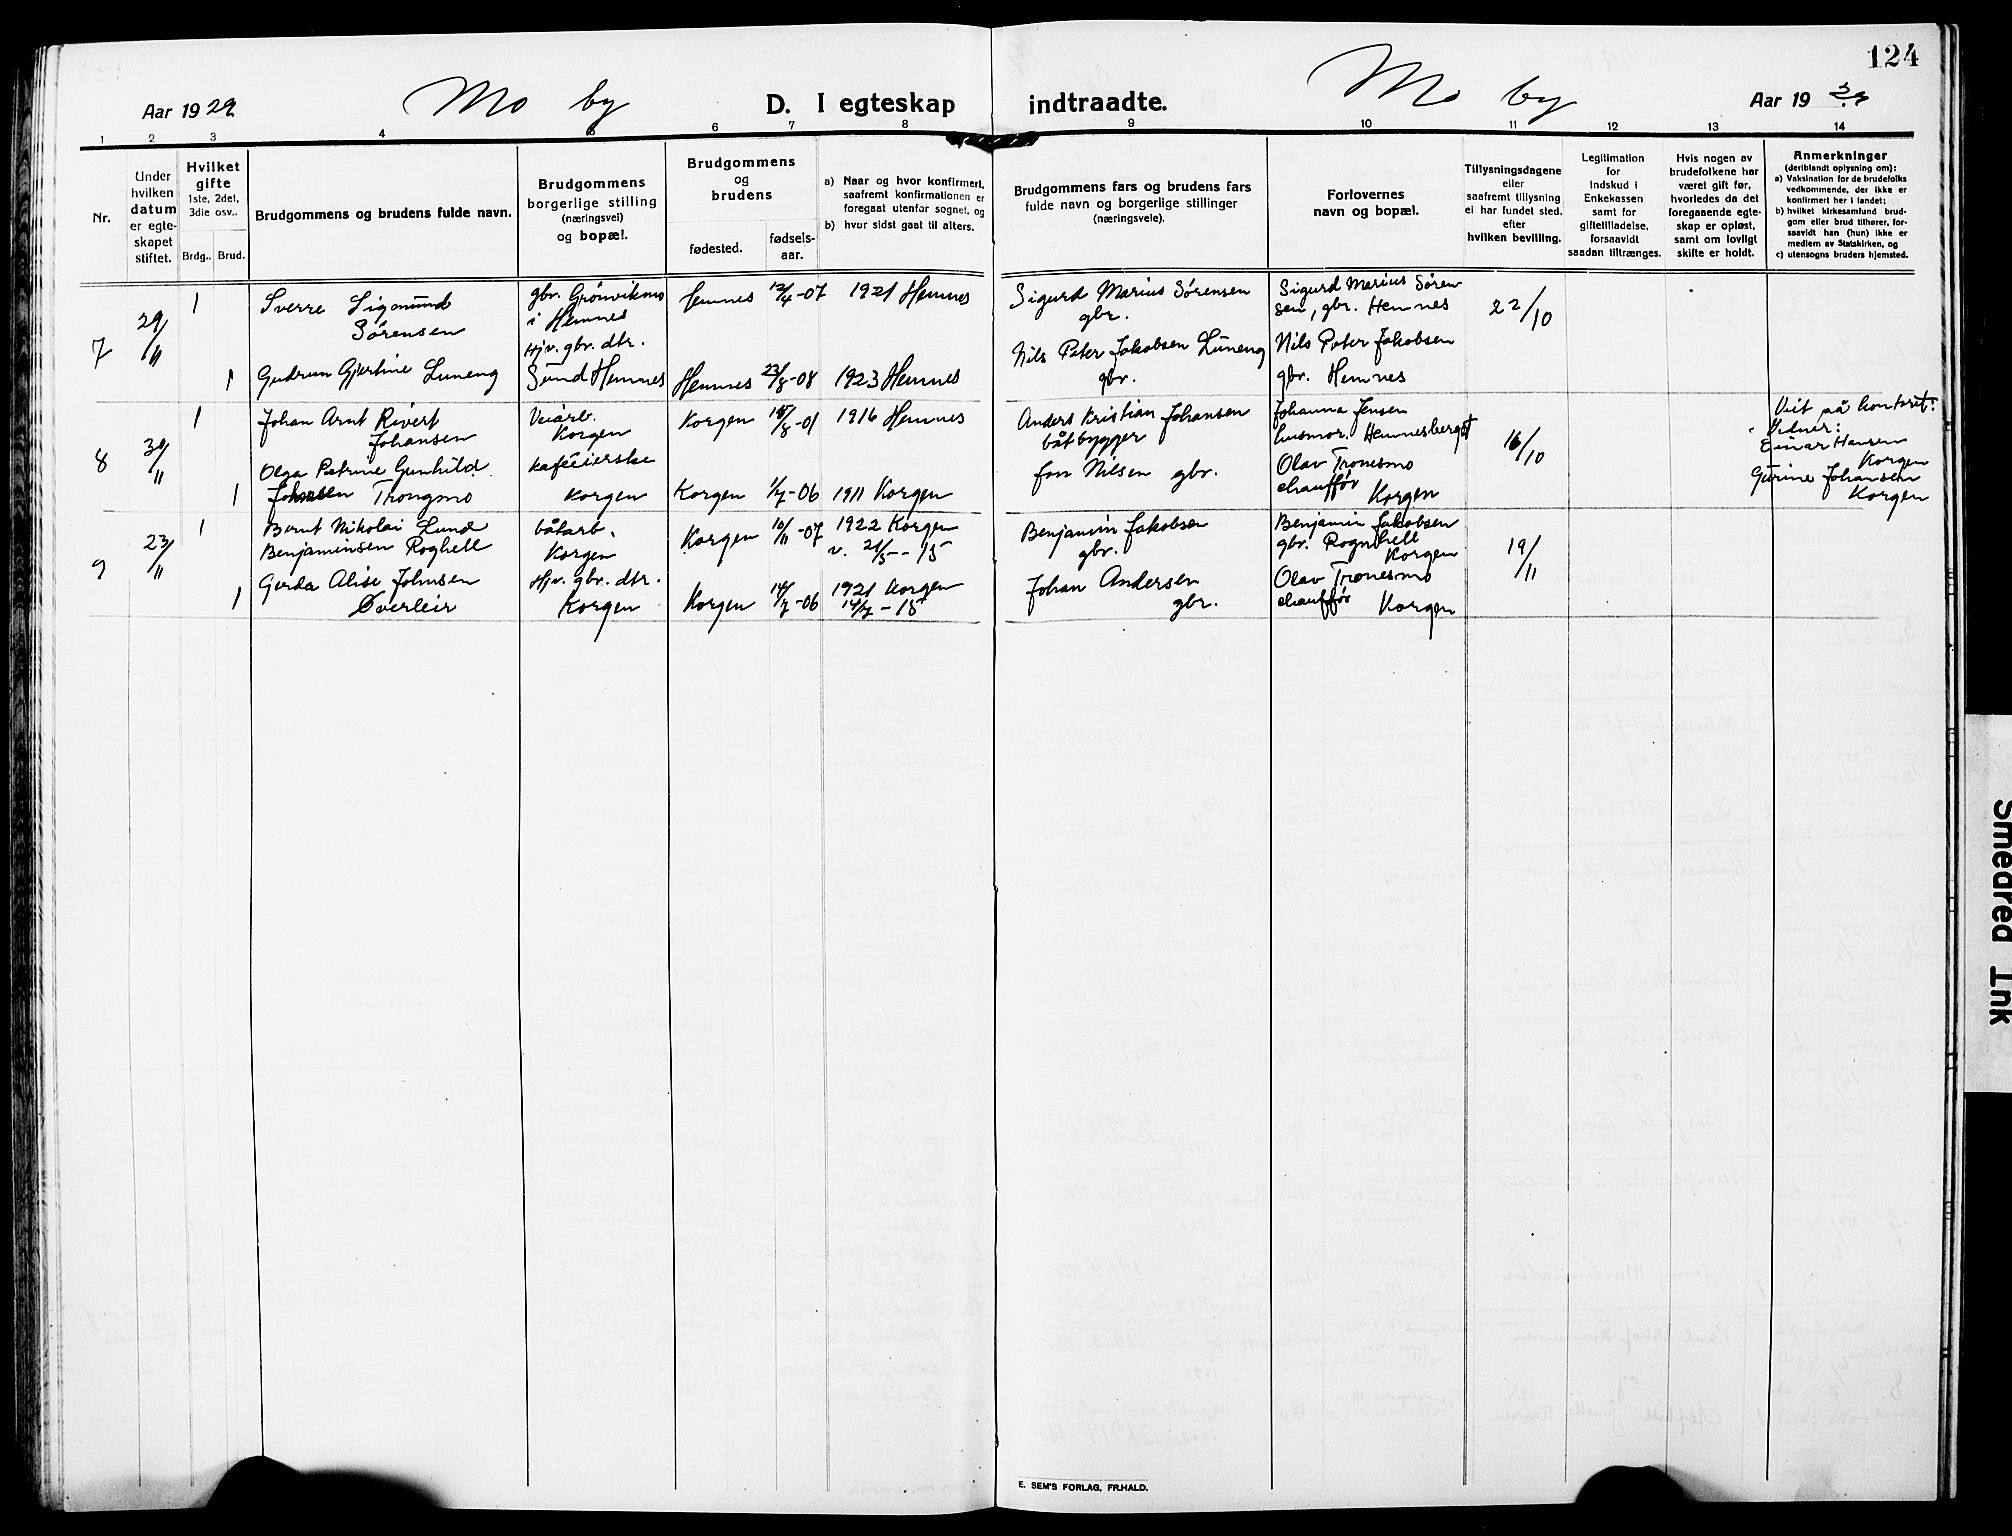 124
Aar 1929 Mo by D. I egteskap indtraadte. Mo by Aar 19 29
1 2 3 4 5 6 7 8 9 10 11 12 13 14
Nr.
Under
hvilken
datum
er egte-
skapet
stiftet.
Hvilket
gifte
1ste, 2det,
3die osv..
Brdg.. Brud.
Brudgommens og brudens fulde navn.
Brudgommens
borgerlige stilling
(næringsvei)
og bopæl.
Brudgommens
og
brudens
fødested.
fødsels-
aar.
a) Naar og hvor konfirmert,
saafremt konfirmationen er
foregaat utenfor sognet, og
b) hvor sidst gaat til alters.
Brudgommens fars og brudens fars
fulde navn og borgerlige stillinger
(næringsveie).
Forlovernes
navn og bopæl.
Tillysningsdagene
eller
saafremt tillysning
ei har fundet sted.
efter
hvilken bevilling.
Legitimation
for
Indskud i
Enkekassen
samt for
giftetilladelse,
forsaavidt
saadan tiltrænges.
Hvis nogen av
brudefolkene har
været gift før,
hvorledes da det
foregaaende egte-
skap er opløst,
samt om lovligt
skifte er holdt.
Anmerkninger
(deriblandt oplysning om):
a) Vaksination for de brudefolks
vedkommende, der ikke er
konfirmert her i landet;
b) hvilket kirkesamfund brud-
gom eller brud tilhører, for-
saavidt han (hun) ikke er
medlem av Statskirken, og
c) utensogns bruders hjemsted.
7
29/11
1
Sverre Sigmund
Sørensen
gbr. Grønviknes
i Hemnes
Hemnes 12/4-07 1921 Hemnes
Sigurd Marius Sørensen
gbr.
Sigurd Marius Søren
sen, gbr. Hemnes
22/10
1
Gudrun Gjertine Luneng
Hjv. gbr. dtr.
Sund Hemnes
Hemnes 23/8-08 1923 Hemnes
Nils Peter Jakobsen Luneng
gbr.
Nils Peter Jakobsen
gbr. Hemnes
8
30/11
1
Johan Arnt Rivert
Johansen
Veiarb.
Korgen
Korgen 15/8-01 1916 Hemnes
Anders Kristian Johansen
båtbygger
Johanna Jensen
husmor. Hemnesberget
16/10
Viet på kontoret:
Vidner:
Einar Hansen
Korgen
Gurine Johansen
Korgen
1
Olga Petrine Gunhild
Johnsen Trongmo
kaféeierske
Korgen
Korgen 1/7-06 1911 Korgen
Jon Nilsen gbr.
Olav Tronesmo
chauffør Korgen
9
23/11
1
Bernt Nikolai Lund
Benjaminsen Roghell
båtarb.
Korgen
Korgen 10/11-07 1922 Korgen
v. 21/5--15
Benjamin Jakobsen
gbr.
Benjamin Jakobsen
gbr. Rognhell
Korgen
19/11
1
Gerda Alise Johnsen
Øverleir
Hjv. gbr. dtr.
Korgen
Korgen 14/7-06 1921 Korgen
14/7-15
Johan Andersen
gbr.
Olav Tronesmo
chauffør Korgen
E. SEM'S FORLAG, FR.HALD.
Smeared Ink